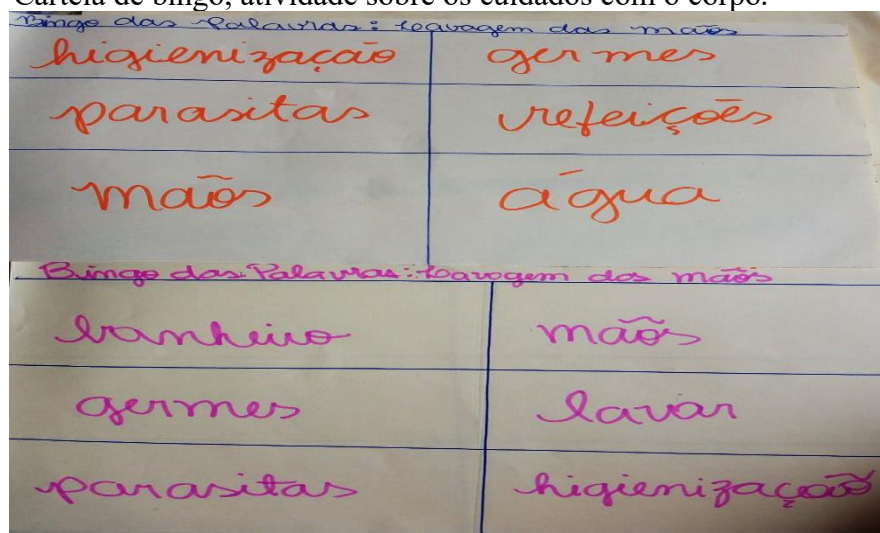 Cartela de bingo, atividade sobre os cuidados com o corpo.
Bingo das Palavras: Lavagem das mãos
higienização germes
parasitas refeições
mãos água
Bingo das Palavras: Lavagem das mãos
banheiro mãos
germes lavar
parasitas higienização